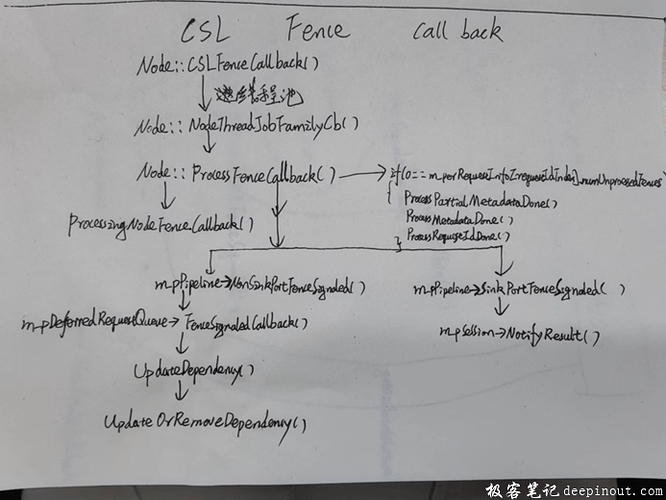 CSL Fence Call back
Node::CSLFenceCallback()
进线程池
Node::NodeThreadJobFamilyCb()
Node::ProcessFenceCallback()
if(0==m_perRequestInfo[requestIdIndex].numUnprocessedFences
{
ProcessPartialMetadataDone()
ProcessMetadataDone()
ProcessRequestIdDone()
}
ProcessingNodeFenceCallback()
m_pPipeline→NonSinkPortFenceSignaled()
m_pPipeline→SinkPortFenceSignaled()
m_pDeferredRequestQueue→FenceSignaledCallback()
m_pSession→NotifyResult()
UpdateDependency()
UpdateOrRemoveDependency()
极客笔记deepinout.com